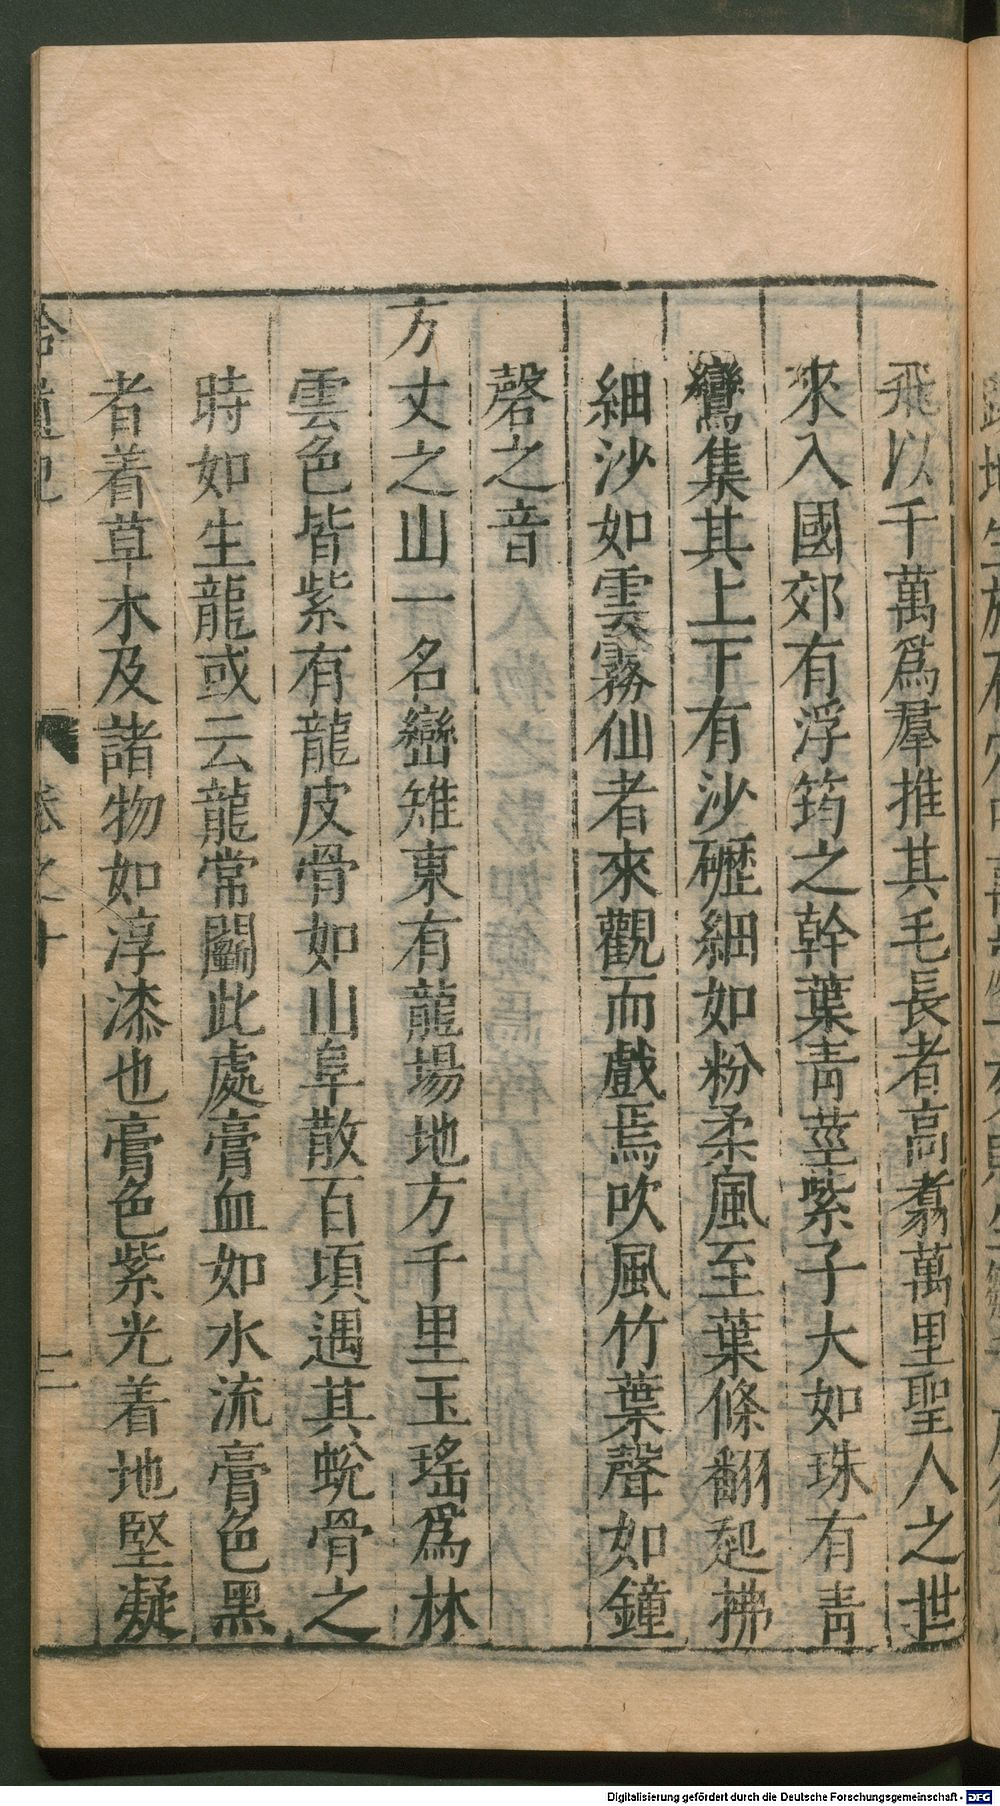 飛以千萬爲羣推其毛長者高翥萬里聖人之世
來入國郊有浮筠之幹葉靑莖紫子大如珠有靑
鸞集其上下有沙礰細如粉柔風至葉條翻起拂
細沙如雲霧仙者來觀而戲焉吹風竹葉聲如鐘
磬之音
方丈之山一名巒雉東有龍場地方千里玉瑤爲林
雲色皆紫有龍皮骨如山阜散百頃遇其蛻骨之
時如生龍或云龍常鬭此處膏血如水流膏色黑
者着草木及諸物如淳漆也膏色紫光着地堅凝
拾遺記 卷之十 二
Digitalisierung gefördert durch die Deutsche Forschungsgemeinschaft - DFG